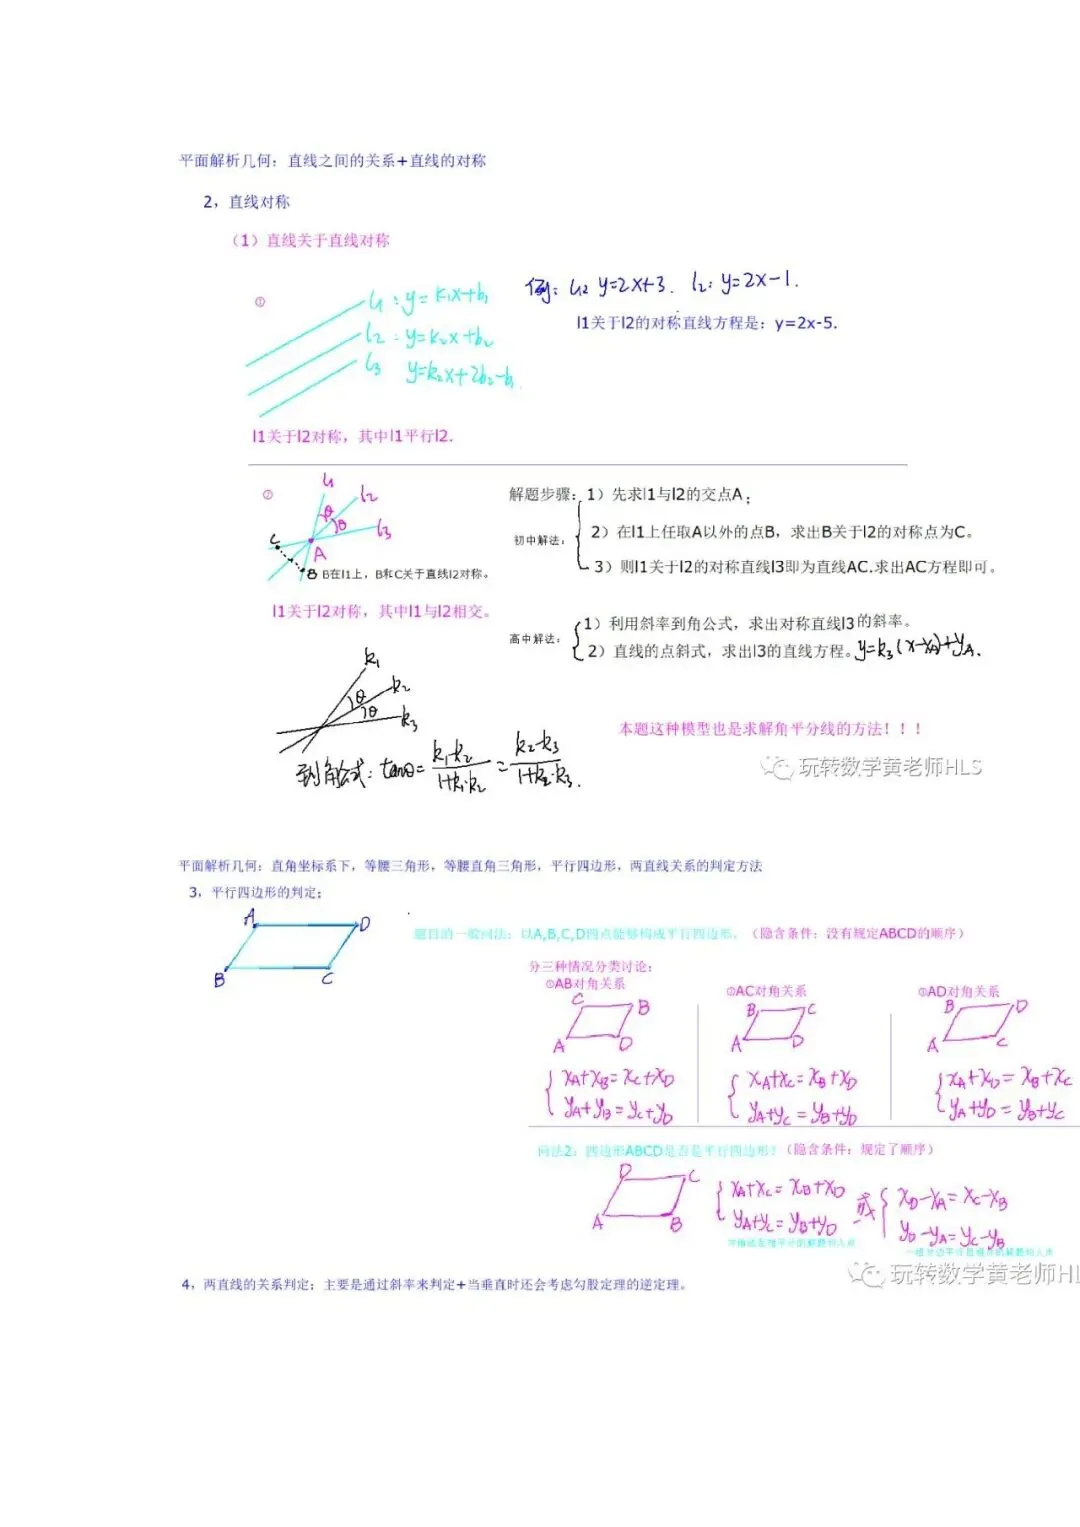 平面解析几何：直线之间的关系+直线的对称
2，直线对称
（1）直线关于直线对称
①
l1：y=k1x+b1
l2：y=k2x+b2
l3 y=k2x+2b2-b1
例：l1：y=2x+3. l2：y=2x-1.
l1关于l2的对称直线方程是：y=2x-5.
l1关于l2对称，其中l1平行l2.
②
l1
l2
l3
θ
θ
C
A
B B在l1上，B和C关于直线l2对称。
l1关于l2对称，其中l1与l2相交。
解题步骤：1）先求l1与l2的交点A；
初中解法：
2）在l1上任取A以外的点B，求出B关于l2的对称点为C。
3）则l1关于l2的对称直线l3即为直线AC.求出AC方程即可。
高中解法：
1）利用斜率到角公式，求出对称直线l3的斜率。
2）直线的点斜式，求出l3的直线方程。y=k3(x-xA)+yA.
k1
k2
k3
θ
θ
到角公式：tanθ=(k1-k2)/(1+k1·k2)=(k2-k3)/(1+k2·k3).
本题这种模型也是求解角平分线的方法！！！
玩转数学黄老师HLS
平面解析几何：直角坐标系下，等腰三角形，等腰直角三角形，平行四边形，两直线关系的判定方法
3，平行四边形的判定；
A D
B C
题目的一般问法：以A,B,C,D四点能够构成平行四边形。（隐含条件：没有规定ABCD的顺序）
分三种情况分类讨论：
①AB对角关系
C B
A D
xA+xB=xC+xD
yA+yB=yC+yD
①AC对角关系
B C
A D
xA+xC=xB+xD
yA+yC=yB+yD
①AD对角关系
B D
A C
xA+xD=xB+xC
yA+yD=yB+yC
问法2：四边形ABCD是否是平行四边形？（隐含条件：规定了顺序）
D C
A B
xA+xC=xB+xD
yA+yC=yB+yD
对角线互相平分的解题切入点
或
xD-xA=xC-xB
yD-yA=yC-yB
一组对边平行且相等的解题切入点
玩转数学黄老师HL
4，两直线的关系判定；主要是通过斜率来判定+当垂直时还会考虑勾股定理的逆定理。